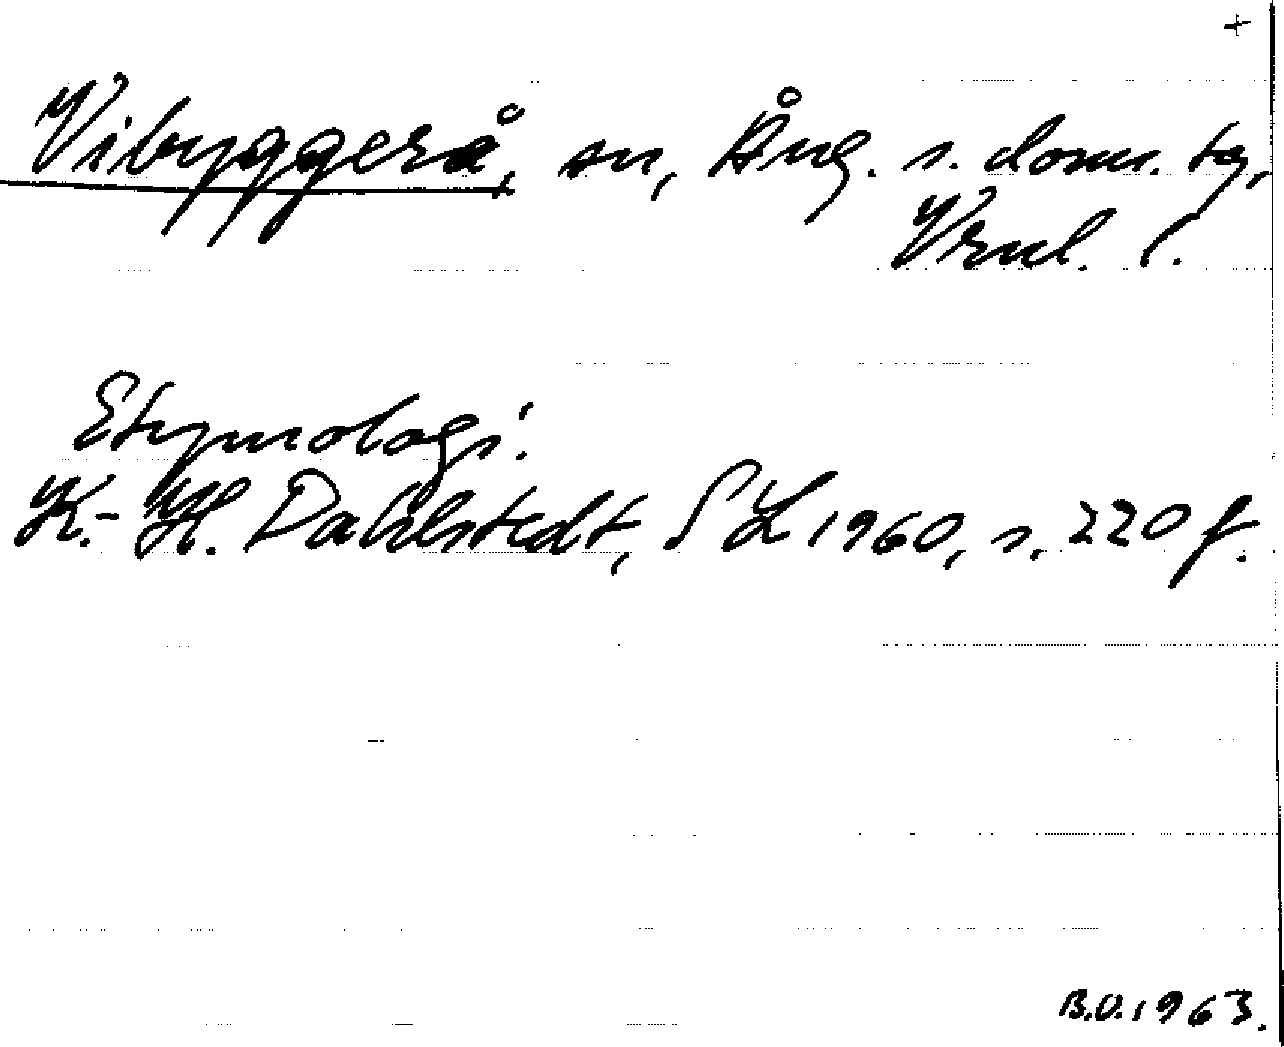 +
Vibyggerå, sn, Ång. s. doms. tg,
Vrnl. l.
Etymologi:
K.-H. Dahlstedt, SL 1960, s. 220 f.
B.O. 1963.